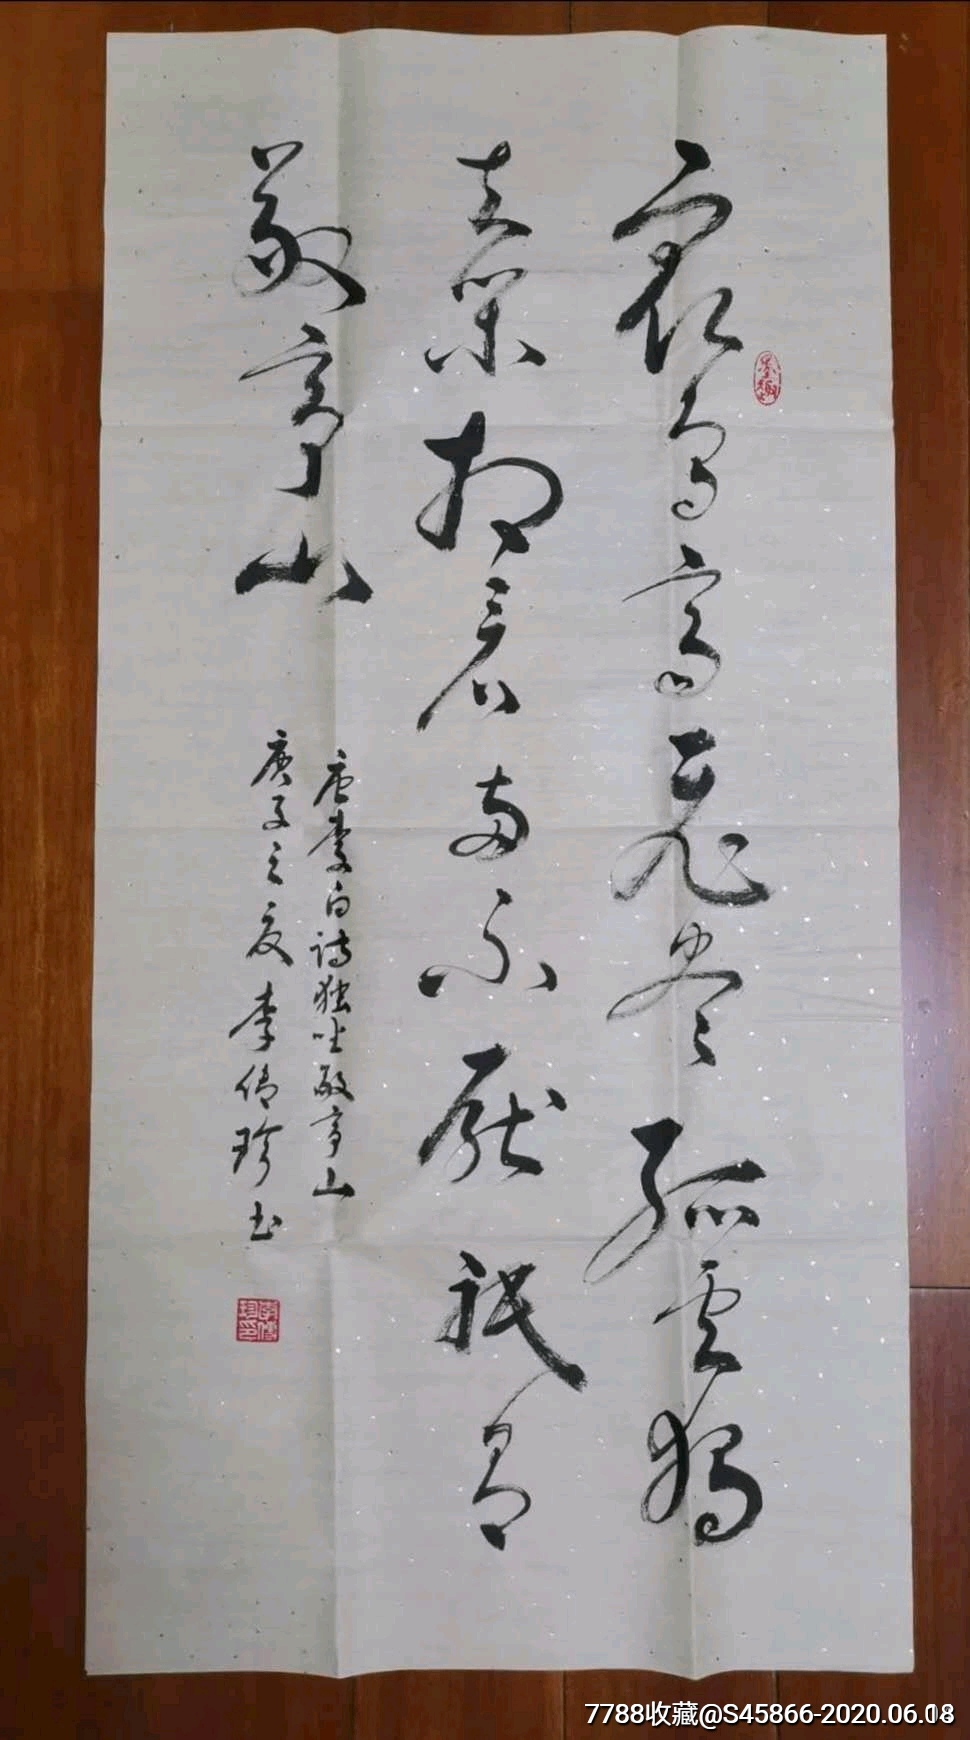 众鸟高飞尽孤云独
去闲相看两不厌只有
敬亭山
唐李白诗独坐敬亭山
庚子之夏李传珍书
李传珍印
7788收藏@S45866-2020.06.18